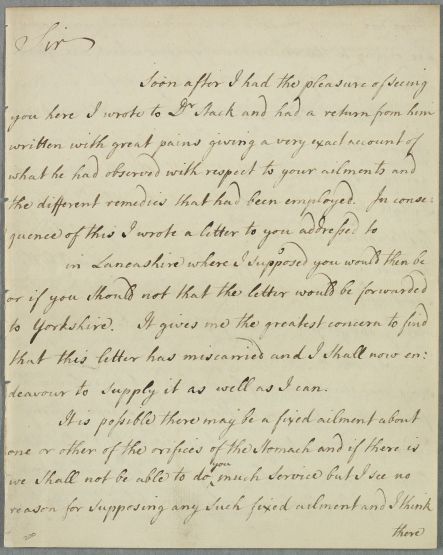 Sir
Soon after I had the pleasure of seeing
you here I wrote to Dr Stack and had a return from him
written with great pains giving a very exact account of
what he had observed with respect to your ailments and
the different remedies that had been employed. In conse:
quence of this I wrote a letter to you addressed to
in Lancashire where I supposed you would then be
or if you should not that the letter would be forwarded
to Yorkshire. It gives me the greatest concern to find
that this letter has miscarried and I shall now en:
deavour to supply it as well as I can.
It is possible there may be a fixed ailment about
one or other of the orifices of the Stomach and if there is
we shall not be able to do you much service but I see no
reason for supposing any such fixed ailment and I think
there